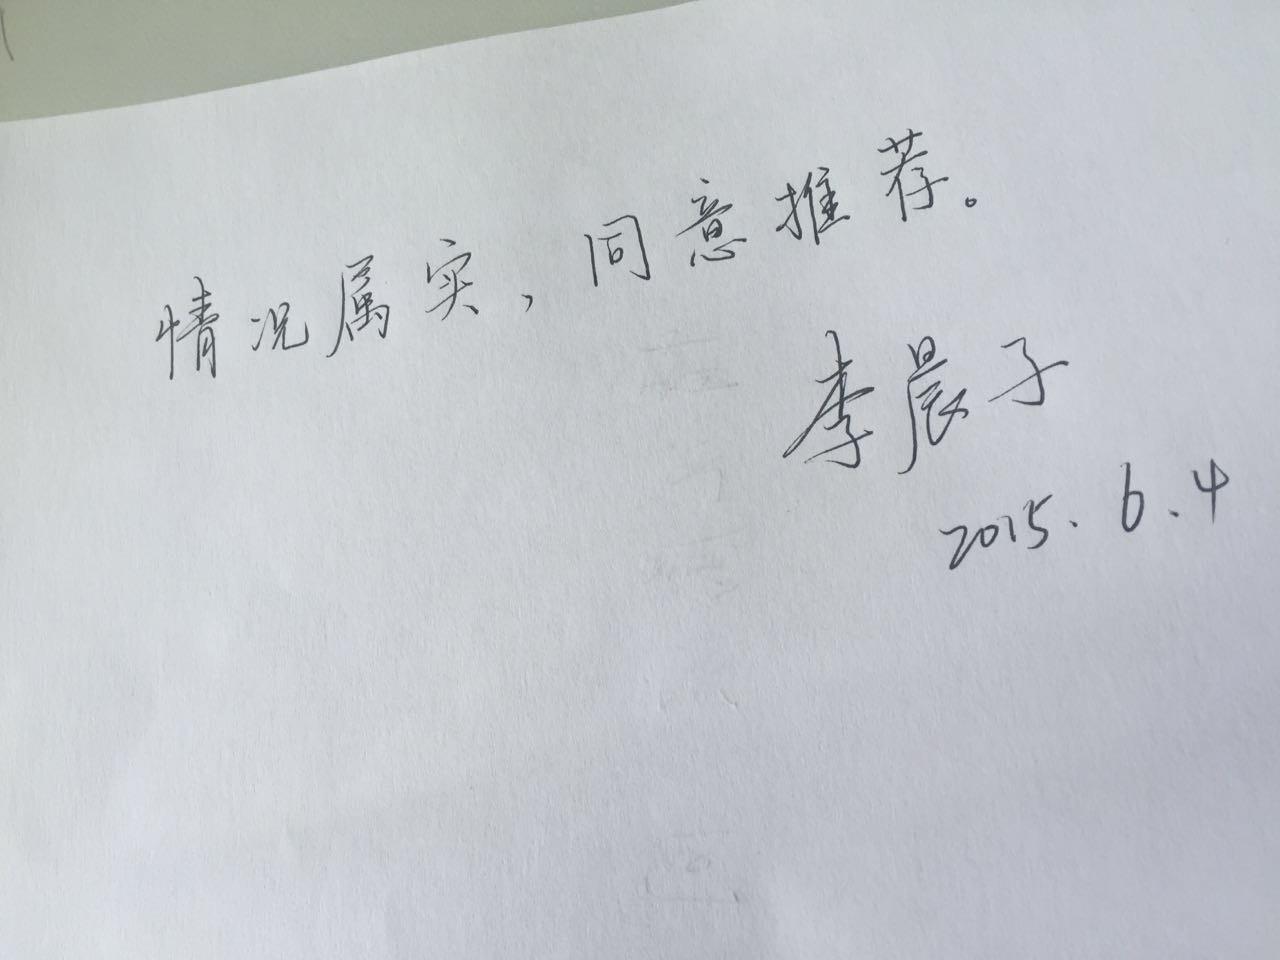 情况属实，同意推荐。
李晨子
2015.6.4